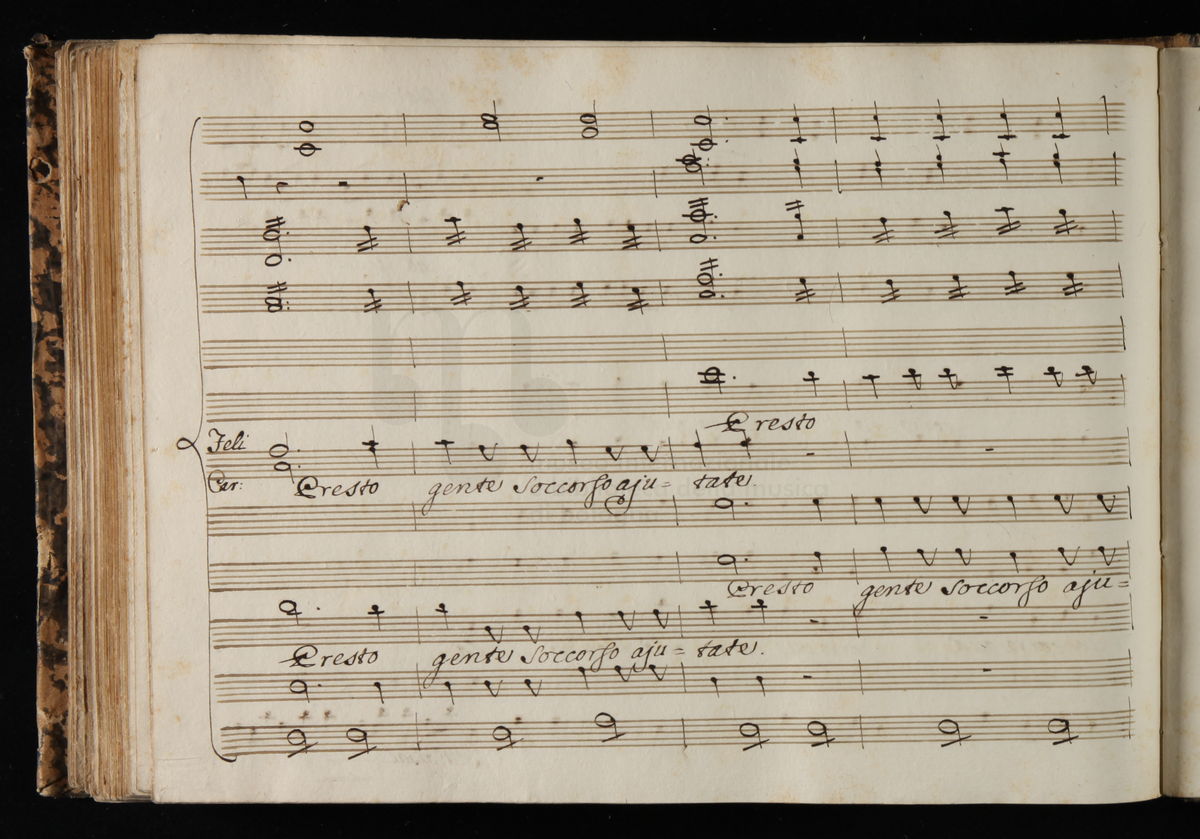 Presto
Feli
Car:
Presto gente soccorso aju= tate.
Presto gente soccorso aju=
Presto gente soccorso aju= tate.